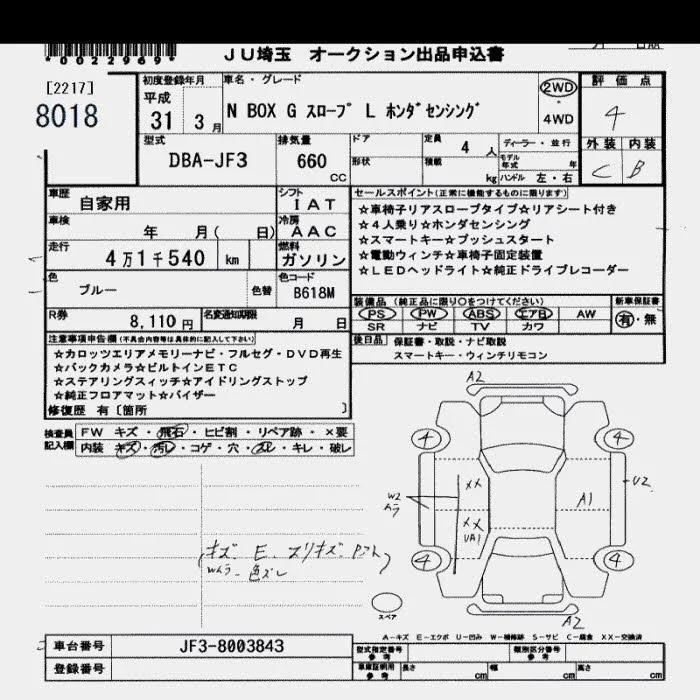 *0022969*
JU埼玉 オークション出品申込書
[2217]
8018
初度登録年月
平成
31 3月
車名・グレード
N BOX G スロープ L ホンダセンシング
2WD
4WD
評価点
4
外装 内装
C B
型式
DBA-JF3
排気量
660
CC
ドア
形状
定員
4 人
積載
kg
ディーラー・並行
モデル年式 年
ハンドル 左・右
車歴
自家用
シフト
IAT
車検
年 月( 日)
冷房
AAC
走行
4万1千540 km
燃料
ガソリン
色
ブルー
色替
色コード
B618M
R券
8,110円
名変通知期限
月 日
セールスポイント(正常に機能するものに限ります)
☆車椅子リアスロープタイプ☆リアシート付き
☆4人乗り☆ホンダセンシング
☆スマートキー☆プッシュスタート
☆電動ウィンチ☆車椅子固定装置
☆LEDヘッドライト☆純正ドライブレコーダー
装備品(純正品に限り○をつけてください)
PS PW ABS エアB AW
SR ナビ TV カワ
新車保証書
有・無
後日品 保証書・取説・ナビ取説
スマートキー・ウィンチリモコン
注意事項申告欄(不具合内容等は具体的に記入して下さい)
☆カロッツエリアメモリーナビ・フルセグ・DVD再生
☆バックカメラ☆ビルトインETC
☆ステアリングスィッチ☆アイドリングストップ
☆純正フロアマット☆バイザー
修復歴 有〔箇所 〕
検査員記入欄
FW キズ・飛石・ヒビ割・リペア跡・×要
内装 キズ・汚レ・コゲ・穴・スレ・キレ・破レ
A2
4 4
W2
ムラ
XX
XX
UA1
A1
U2
4 4
A2
キズ E スリキズ
Wムラ 色ズレ
スペア
A-キズ E-エクボ U-凹み W-補修跡 S-サビ C-腐食 XX-交換済
車台番号 JF3-8003843
登録番号
型式指定番号
参考
類別区分番号
参考
車庫証明用
参考
長さ cm 幅 cm 高さ cm